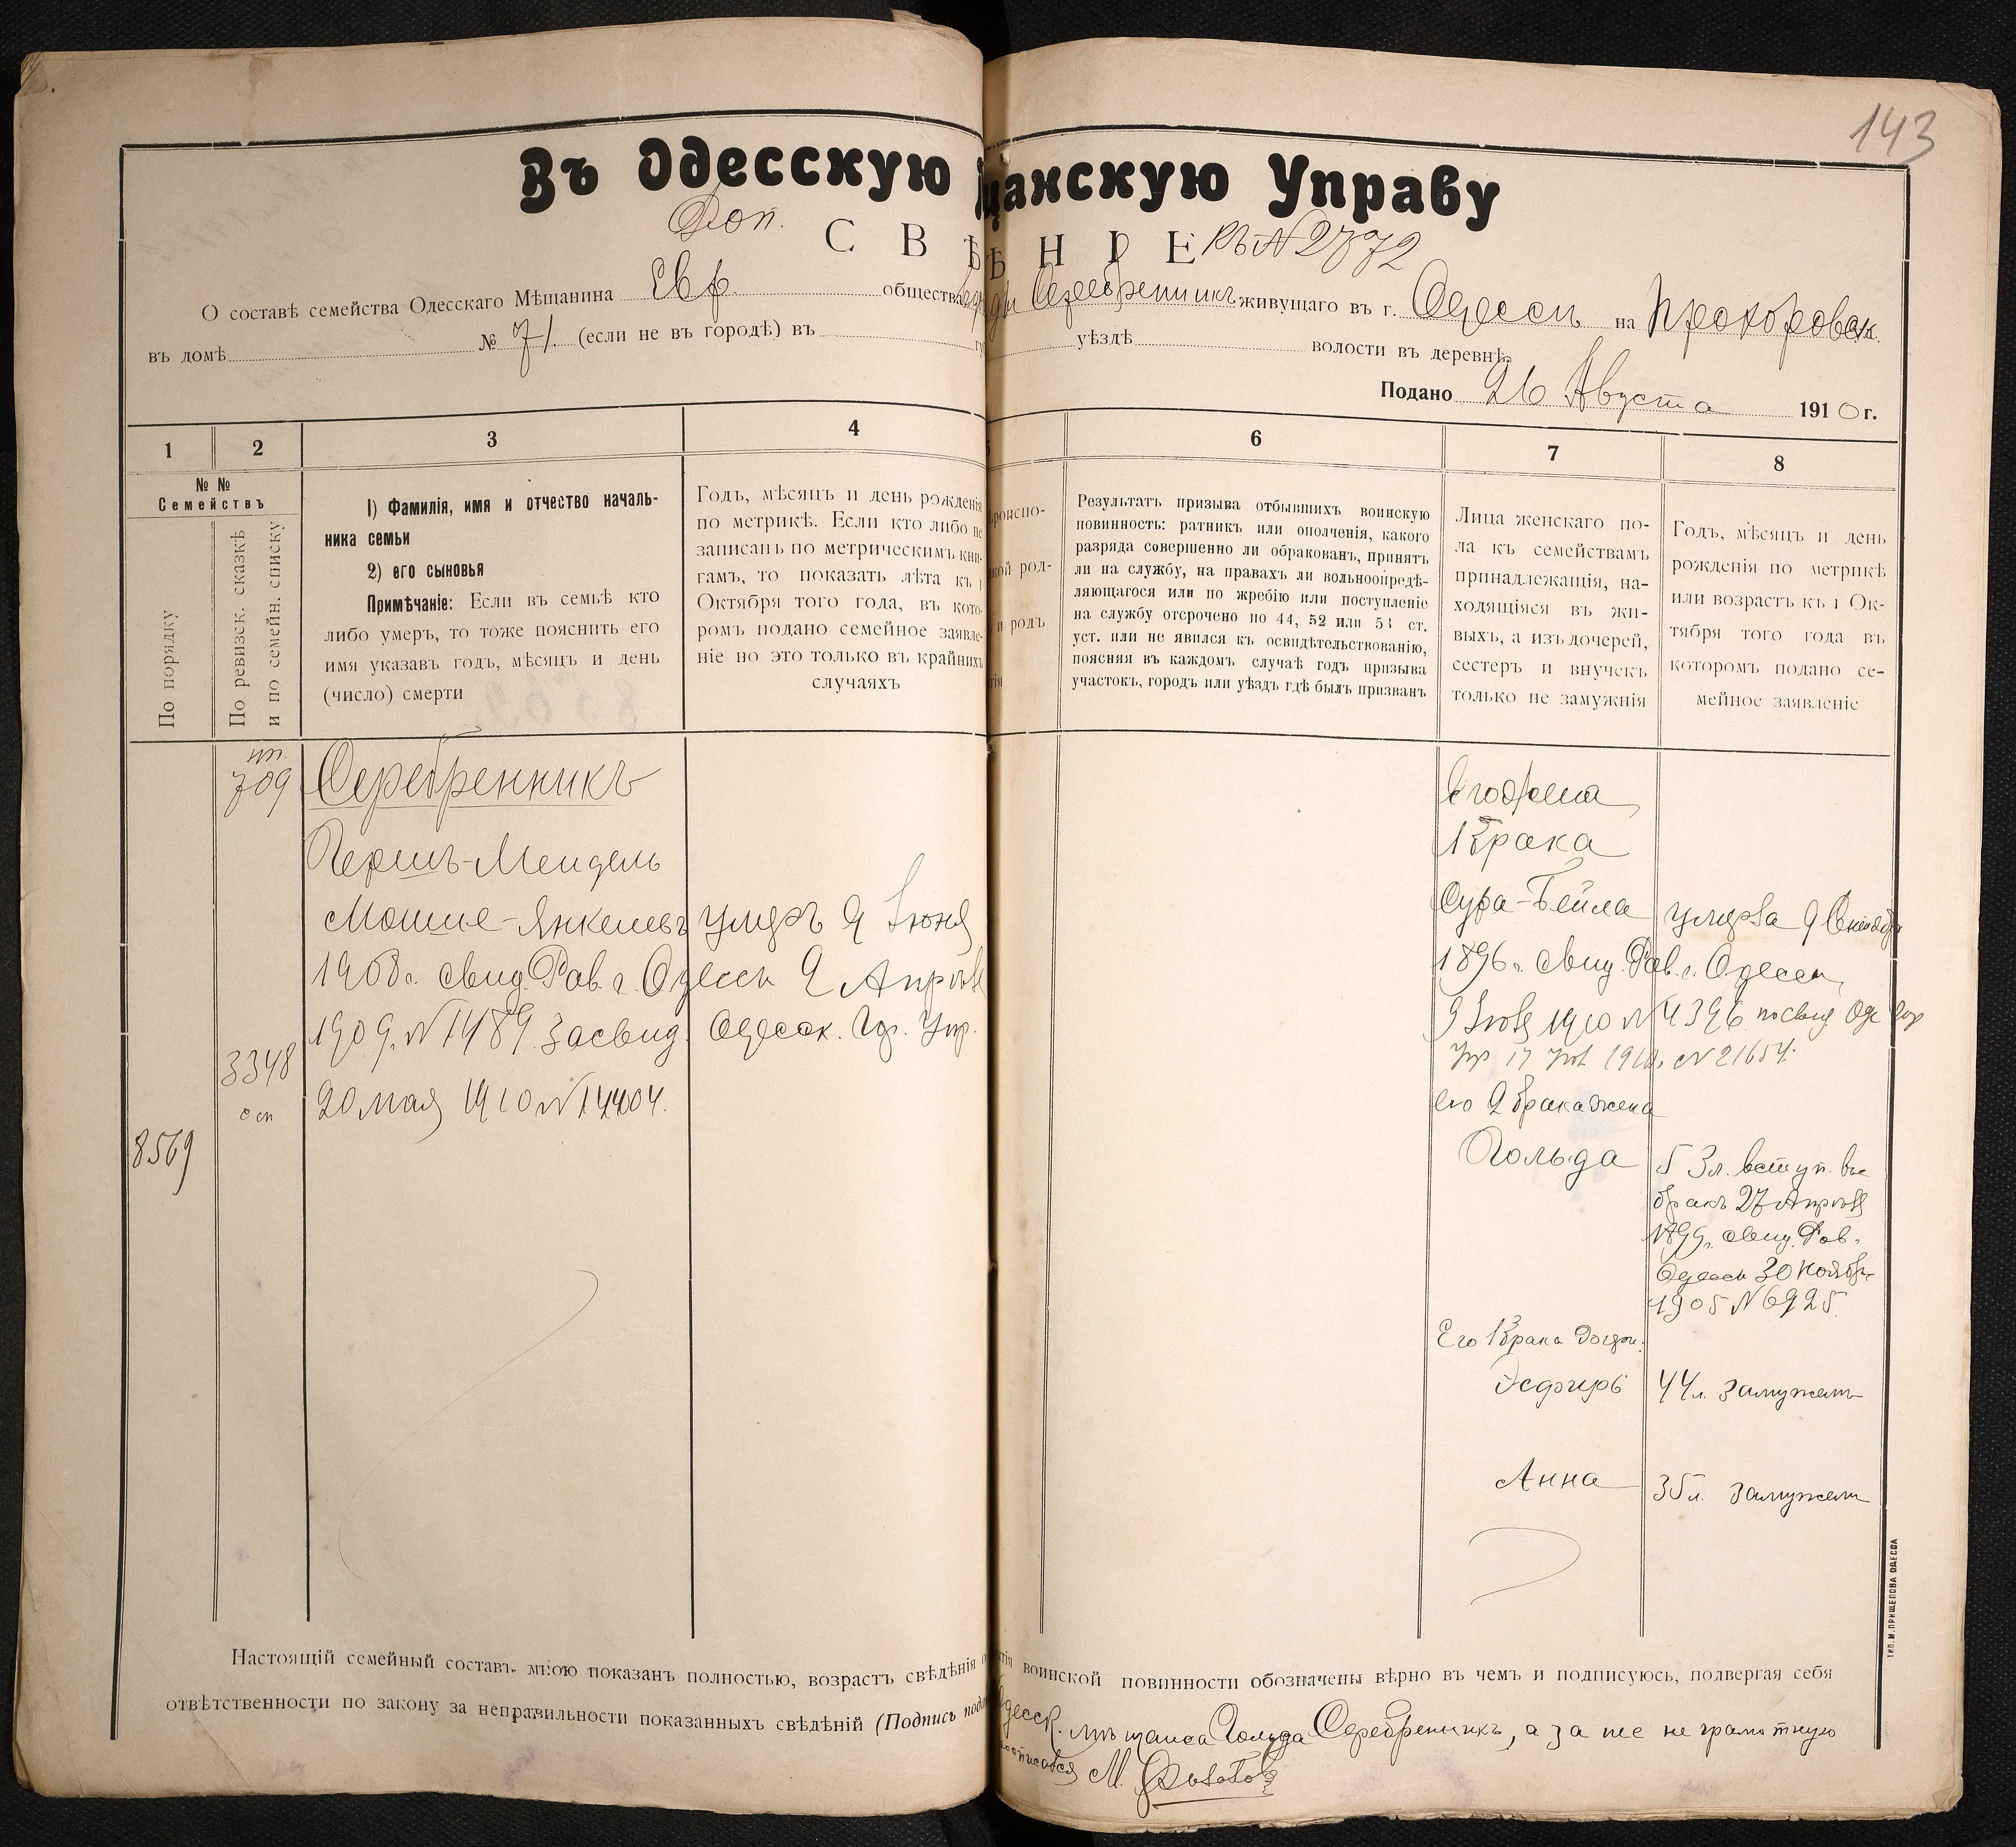 143
Въ Одесскую щанскую Управу
Доп.
СВѢ ѢНІЕ къ № 2872
О составѣ семейства Одесскаго Мѣщанина Евр. общества Серебренникъ живущаго въ г. Одессѣ на Прохоровск.
въ домѣ № 71 (если не въ городѣ) въ уѣздѣ волости въ деревнѣ
Подано 26 Августа 1910 г.
1
2
3
4
5
6
7
8
№ №
Семействъ
По порядку
По ревизск. сказкѣ
и по семейн. списку
1) Фамилія, имя и отчество началь-
ника семьи
2) его сыновья
Примѣчаніе: Если въ семьѣ кто
либо умеръ, то тоже пояснить его
имя указавъ годъ, мѣсяцъ и день
(число) смерти
Годъ, мѣсяцъ и день рожденія
по метрикѣ. Если кто либо не
записанъ по метрическимъ кни-
гамъ, то показать лѣта къ 1
Октября того года, въ кото-
ромъ подано семейное заявле-
ніе но это только въ крайнихъ
случаяхъ
роиспо-
кой род-
и родъ
тія
Результатъ призыва отбывшихъ воинскую
повинность: ратникъ или ополченія, какого
разряда совершенно ли обракованъ, принятъ
ли на службу, на правахъ ли вольноопредѣ-
ляющагося или по жребію или поступленіе
на службу отсрочено по 44, 52 или 53 ст.
уст. или не явился къ освидѣтельствованію,
поясняя въ каждомъ случаѣ годъ призыва
участокъ, городъ или уѣздъ гдѣ былъ призванъ
Лица женскаго по-
ла къ семействамъ
принадлежащія, на-
ходящіяся въ жи-
выхъ, а изъ дочерей,
сестеръ и внучекъ
только не замужнія
Годъ, мѣсяцъ и день
рожденія по метрикѣ
или возрастъ къ 1 Ок-
тября того года въ
которомъ подано се-
мейное заявленіе
709
Серебренникъ
Гершъ-Мендель
Мошке-Янкелевъ умеръ 9 Іюня
1908 г. свид. Рав. г. Одессы 9 Апрѣля
1909 г. № 1489. Засвид. Одесск. Гор. Упр.
20 мая 1910 № 14404.
3348
8569
Его жена
1 брака
Сура-Бейла умерла 9 Октября
1896 г. свид. Рав. г. Одессы,
9 Іюля 1910 № 4396 по свид. Одес Гор
Упр 17 Іюл 1910, № 21654.
его 2 брака жена
Гольда
53 л. вступ. въ
бракъ 27 Апрѣля
1899 г. свид. Рав.
Одессы 30 Ноября
1905 № 6925
Его 1 брака дочери:
Эсфирь 44 л. замужемъ
Анна 35 л. замужемъ
Настоящій семейный составъ мною показанъ полностью, возрастъ свѣдѣнія о тія воинской повинности обозначены вѣрно въ чемъ и подписуюсь, подвергая себя
отвѣтственности по закону за неправильности показанныхъ свѣдѣній (Подпись под Одесск. мѣщанка Гольда Серебренникъ, а за нее неграмотную
росписался М.
ТИП. М. ПРИЩЕПОВА ОДЕССА